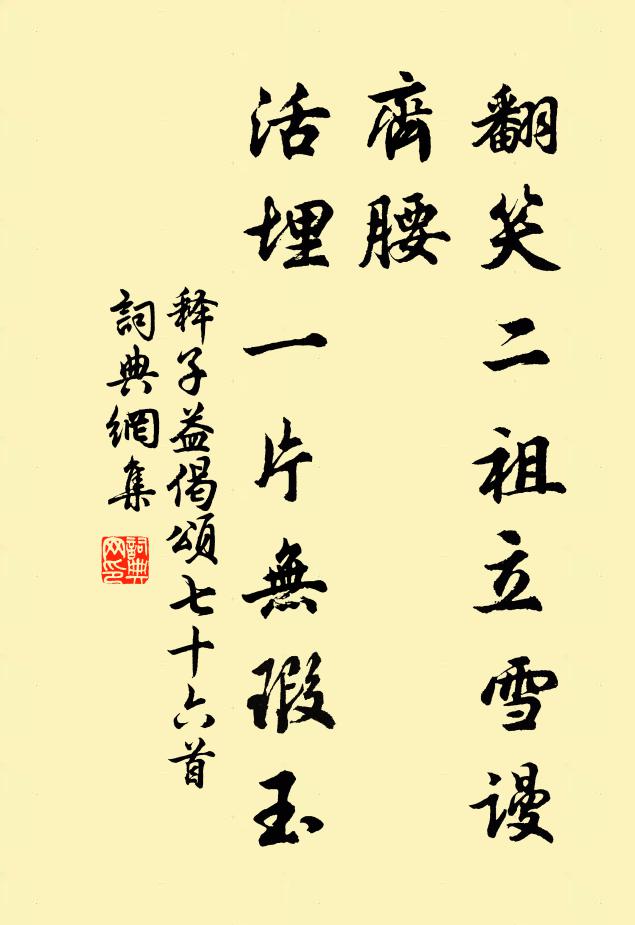 翻笑二祖立雪謾
齊腰
活埋一片無瑕玉
释子益偈頌七十六首
詞典網集
詞典
网印